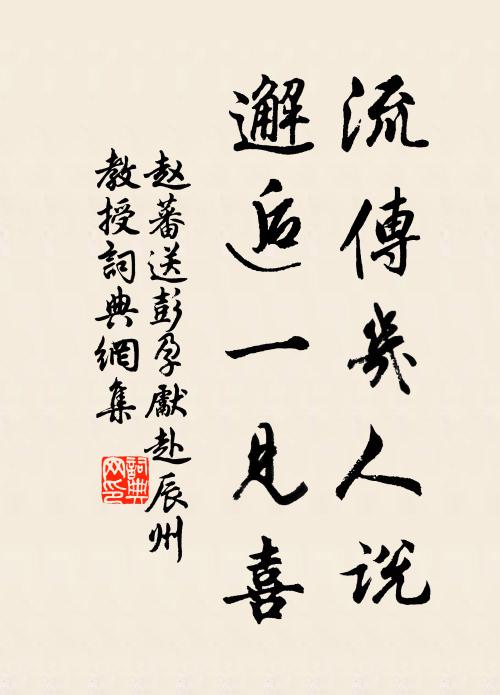 流傳幾人說
邂逅一見喜
赵蕃送彭孕獻赴辰州
教授詞典網集
詞典网印